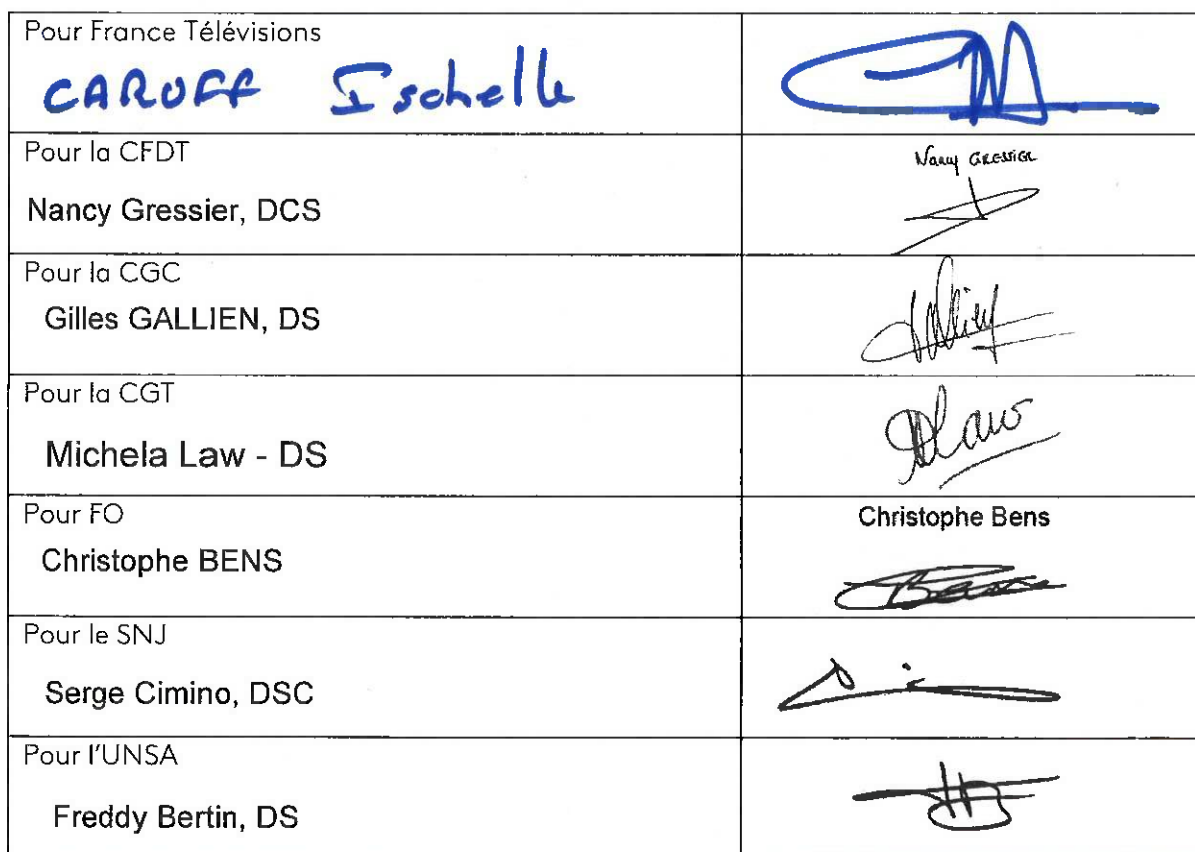 Pour France Télévisions
CAROFF Isabelle
Pour la CFDT
Nancy GRESSIER
Nancy Gressier, DCS
Pour la CGC
Gilles GALLIEN, DS
Pour la CGT
Michela Law - DS
Law
Pour FO
Christophe Bens
Christophe BENS
Bens
Pour le SNJ
Serge Cimino, DSC
Pour l'UNSA
Freddy Bertin, DS